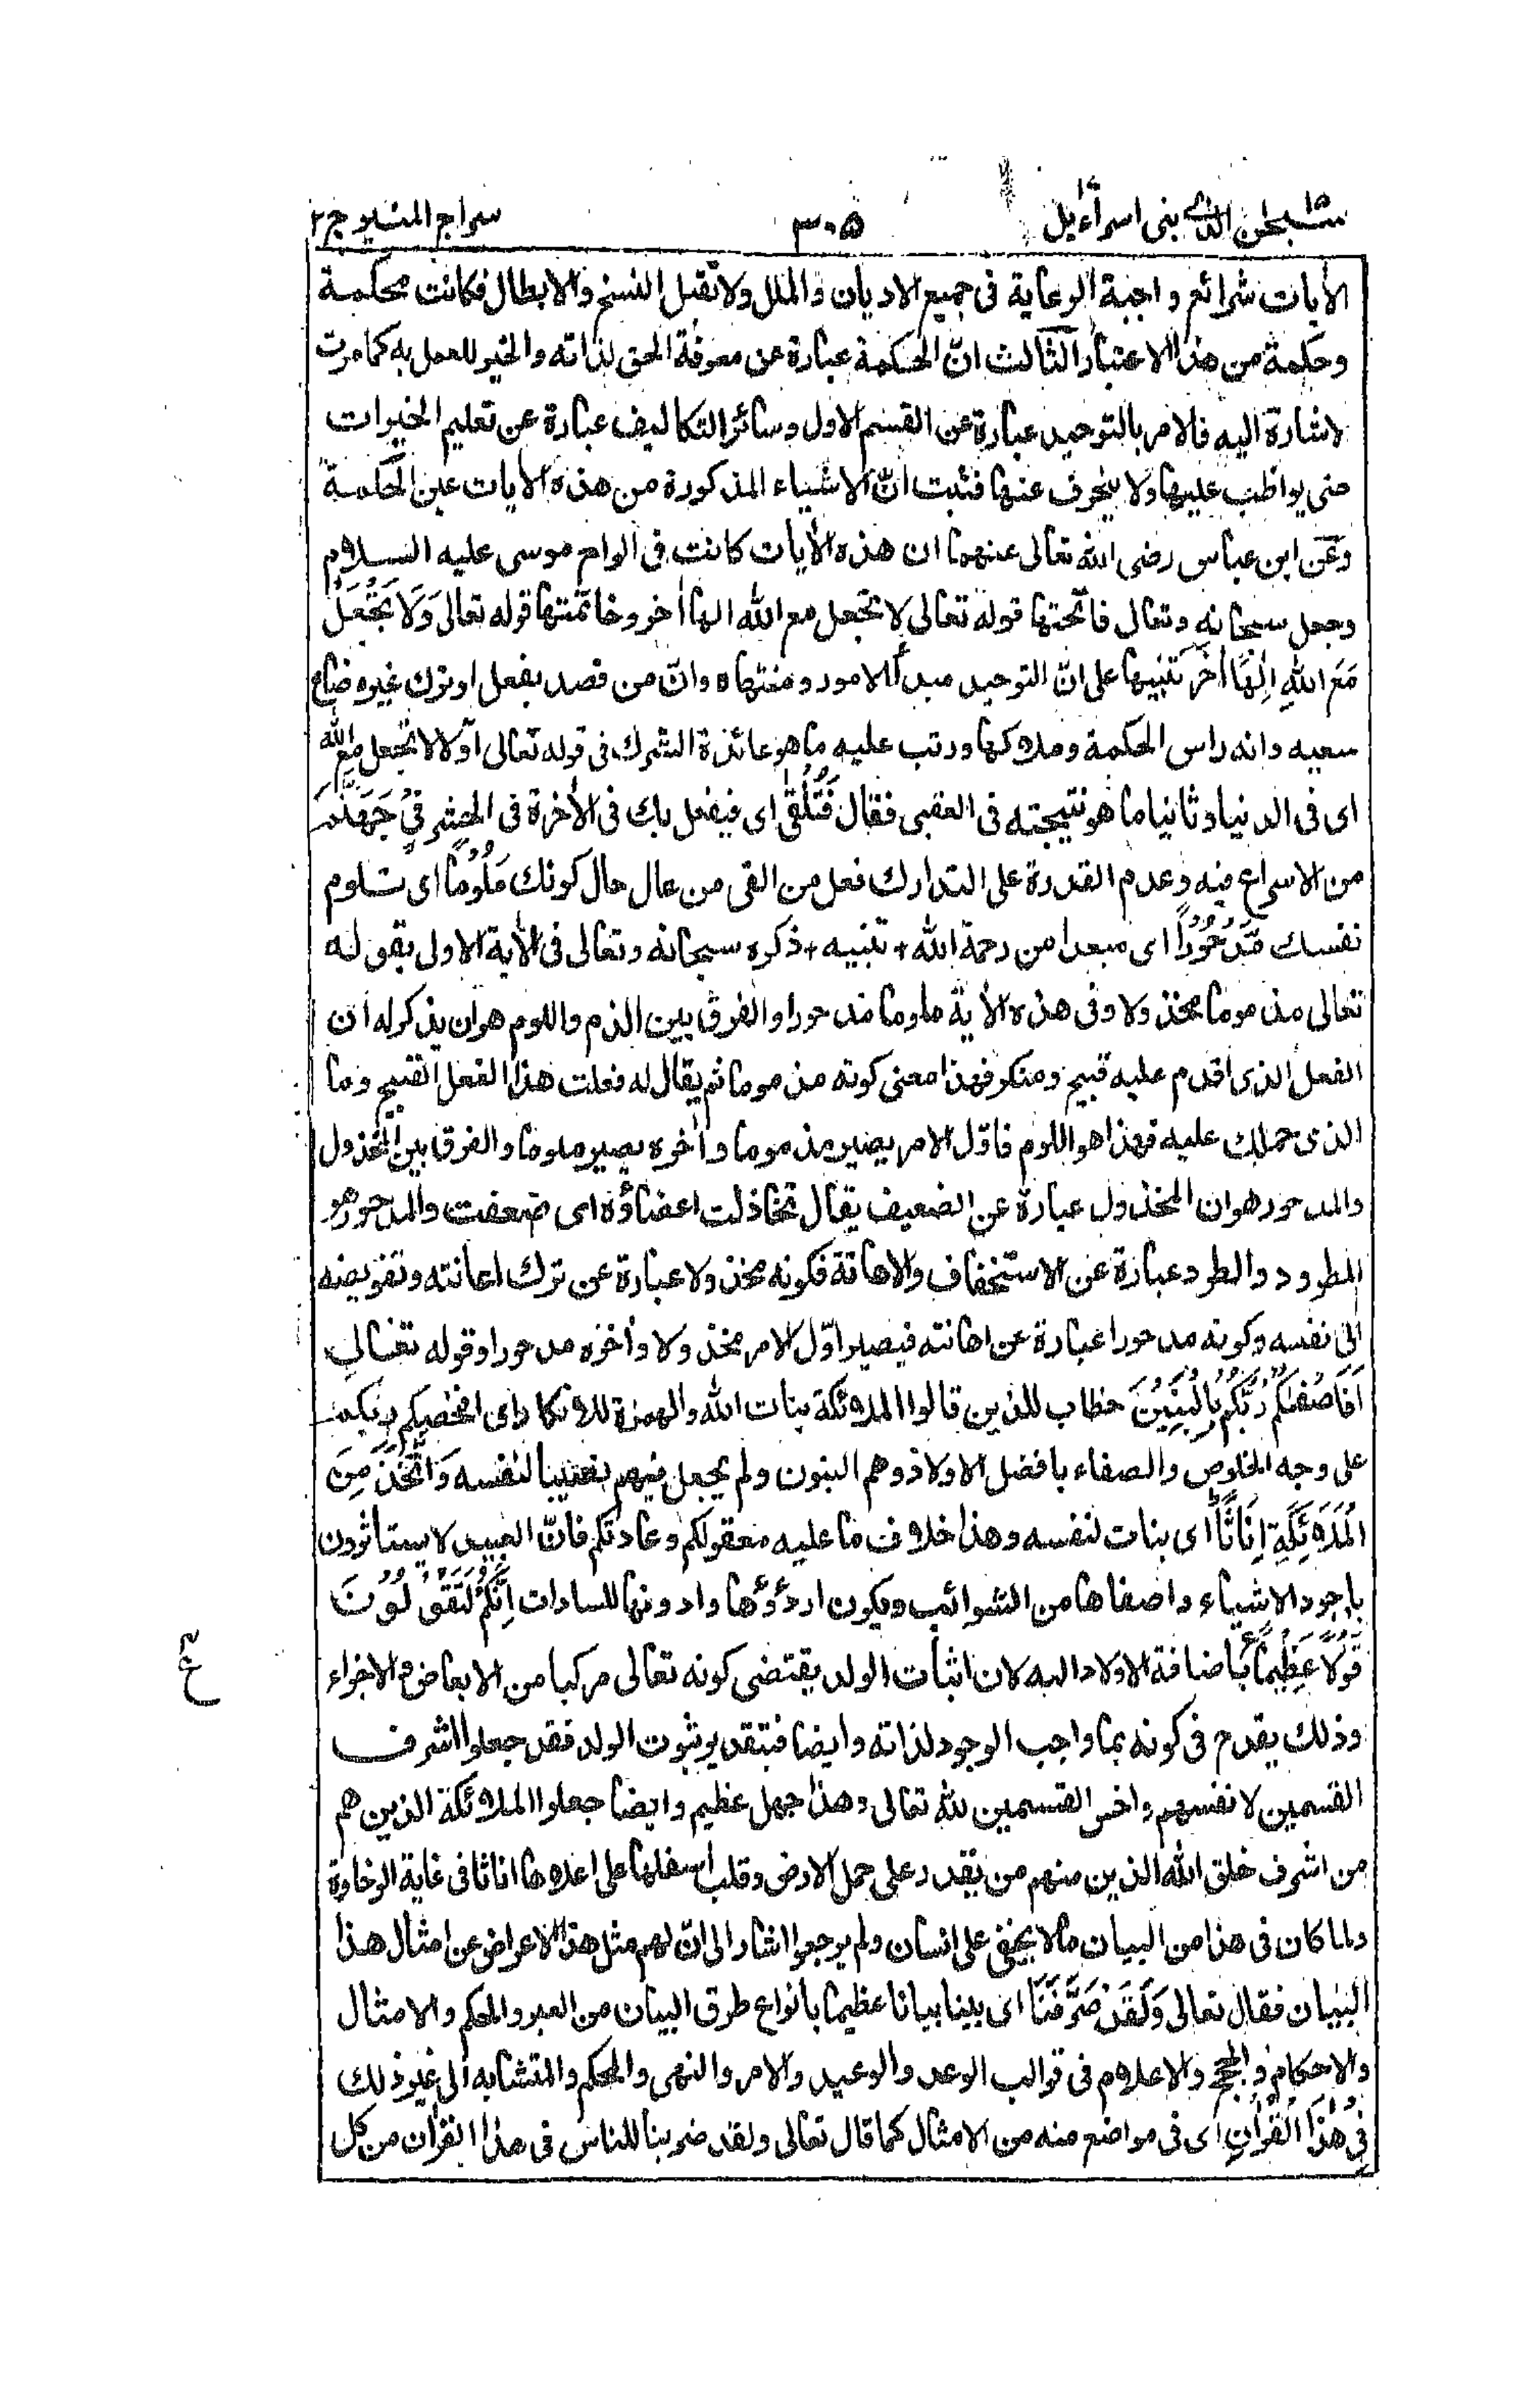 سبحٰن الذی ١٥ بنی اسرآءیل ١٧
٣٠٥
سراج المنیر ج٢
الاٰيات شرائع واجبة الرعاية فى جميع الاديان والملل ولا تقبل النسخ والابطال فكانت محكمة
وحكمة من هذا الاعتبار الثالث انّ الحكمة عبارة عن معرفة الحق لذاته والخير للعمل به كما مرت
لاشارة اليه فالامر بالتوحيد عبارة عن القسم الاول وسائر التكاليف عبارة عن تعليم الخيرات
حتى يواظب عليها ولا ينحرف عنها فثبت انّ الاشياء المذكورة من هذه الاٰيات عين الحكمة
وعن ابن عباس رضى الله تعالى عنهما ان هذه الاٰيات كانت فى الواح موسى عليه السلام
وجعل سبحانه وتعالى فاتحتها قوله تعالى لا تجعل مع الله الها اٰخر وخاتمتها قوله تعالى وَلَا تَجْعَلْ
مَعَ اللهِ اِلٰهًا اٰخَرَ تنبيها على انّ التوحيد مبدأ الامور ومنتهاه وانّ من قصد بفعل او ترك غيره ضاع
سعيه وانه راس الحكمة وملاكها ورتب عليه ما هو عائدة الشرك فى قوله تعالى اولا لا تجعل مع الله
اى فى الدنيا وثانيا ما هو نتيجته فى العقبى فقال فَتُلْقٰى اى فيفعل بك فى الاٰخرة فى الحشر فِيْ جَهَنَّمَ
من الاسراع فيه وعدم القدرة على التدارك فعل من القى من عال حال كونك مَلُوْمًا اى تلوم
نفسك مَّدْحُوْرًا اى مبعدا من رحمة الله + تنبيه + ذكره سبحانه وتعالى فى الاٰية الاولى بقوله
تعالى مذموما مخذولا وفى هذه الاٰية ملوما مدحورا والفرق بين الذم واللوم هو ان يذكر له ان
الفعل الذى اقدم عليه قبيح ومنكر فهذا معنى كونه مذموما ثم يقال له فعلت هذا الفعل القبيح وما
الذى حملك عليه فهذا هو اللوم فاوّل الامر يصير مذموما واٰخره يصير ملوما والفرق بين المخذول
والمدحور هو ان المخذول عبارة عن الضعيف يقال تخاذلت اعضاؤه اى ضعفت والمدحور هو
المطرود والطرد عبارة عن الاستخفاف والاهانة فكونه مخذولا عبارة عن ترك اعانته وتفويضه
الى نفسه وكونه مدحورا عبارة عن اهانته فيصير اوّل الامر مخذولا واٰخره مدحورا وقوله تعالى
اَفَاَصْفٰىكُمْ رَبُّكُمْ بِالْبَنِيْنَ خطاب للذين قالوا الملائكة بنات الله والهمزة للانكار اى افخصكم ربكم
على وجه الخلوص والصفاء بافضل الاولاد وهم البنون ولم يجعل فيهم نصيبا لنفسه وَاتَّخَذَ مِنَ
الْمَلٰٓئِكَةِ اِنَاثًا اى بنات لنفسه وهذا خلاف ما عليه معقولكم وعادتكم فانّ العبيد لا يستاثرون
باجود الاشياء واصفاها من الشوائب ويكون اردؤها وادونها للسادات اِنَّكُمْ لَتَقُوْلُوْنَ
قَوْلًا عَظِيْمًا باضافة الاولاد اليه لان اثبات الولد يقتضى كونه تعالى مركبا من الابعاض والاجزاء
وذلك يقدح فى كونه بما واجب الوجود لذاته وايضا فبتقدير ثبوت الولد فقد جعلوا اشرف
القسمين لانفسهم واخس القسمين لله تعالى وهذا جهل عظيم وايضا جعلوا الملائكة الذين هم
من اشرف خلق الله الذين منهم من يقدر على حمل الارض وقلب اسفلها على اعلاها اناثا فى غاية الرخاوة
ولما كان فى هذا من البيان ما لا يخفى على انسان ولم يرجعوا اشار الى انّ لهم مثل هذا الاعراض عن امثال هذا
البيان فقال تعالى وَلَقَدْ صَرَّفْنَا اى بينا بيانا عظيما بانواع طرق البيان من العبر والحكم والامثال
والاحكام والحجج والاعلام فى قوالب الوعد والوعيد والامر والنهى والمحكم والمتشابه الى غير ذلك
فِيْ هٰذَا الْقُرْاٰنِ اى فى مواضع منه من الامثال كما قال تعالى ولقد ضربنا للناس فى هذا القراٰن من كل